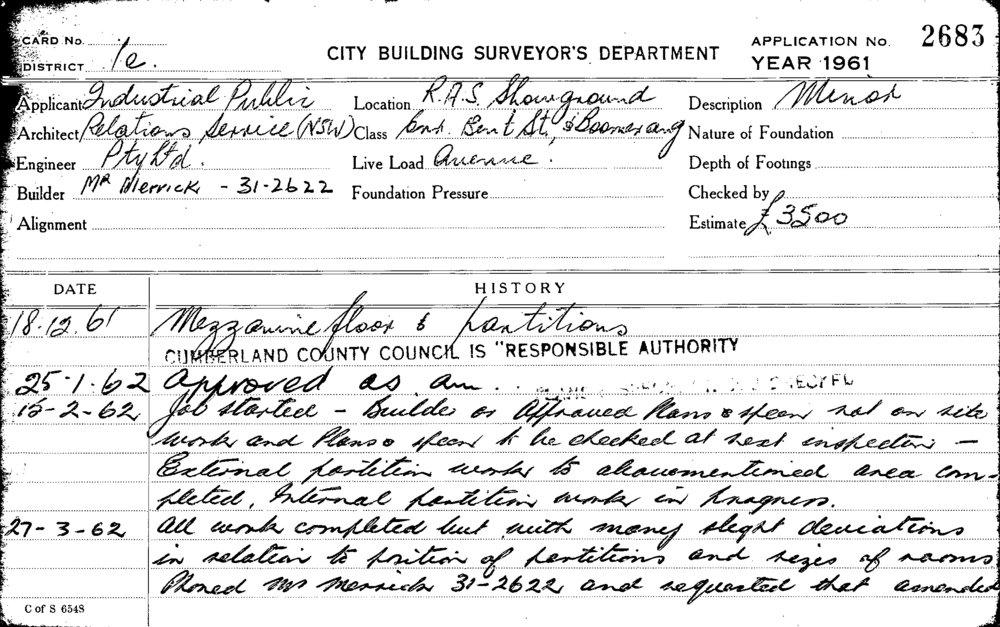 CARD No.
DISTRICT 1c.
CITY BUILDING SURVEYOR'S DEPARTMENT
APPLICATION No. 2683
YEAR 1961
Applicant Industrial Public
Location R.A.S. Showground
Description Minor
Architect Relations Service (NSW)
Class Cnr. Bent St, & Boomerang
Nature of Foundation
Engineer Pty Ltd.
Live Load Avenue.
Depth of Footings
Builder Mr Merrick - 31-2622
Foundation Pressure
Checked by
Alignment
Estimate £3500
DATE
HISTORY
18.12.61 Mezzanine floor & partitions
CUMBERLAND COUNTY COUNCIL IS "RESPONSIBLE AUTHORITY
25-1-62 Approved as am.
15-2-62 Job started - Builder or Approved Plans & specn not on site
work and Plans & specn to be checked at next inspection -
External partition works to abovementioned area com-
pleted. Internal partition work in progress.
27-3-62 All work completed but with many slight deviations
in relation to position of partitions and sizes of rooms
Phoned Mr Merrick 31-2622 and requested that amended
C of S 6548